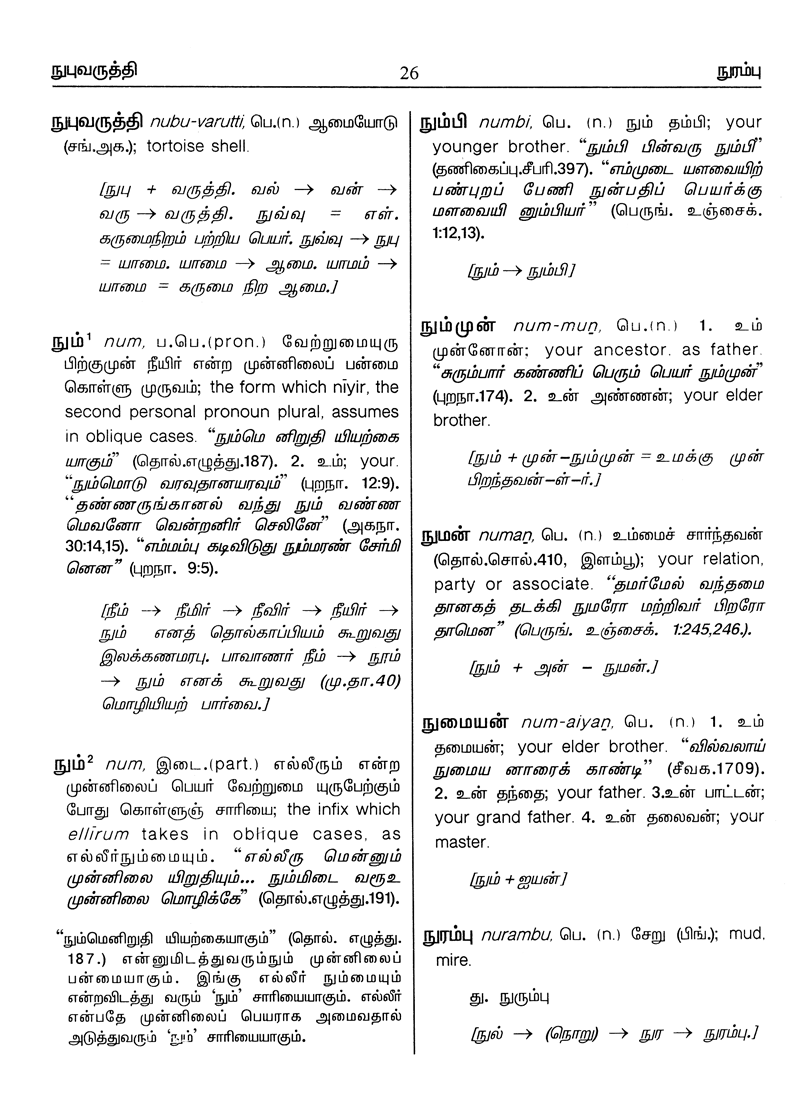 நுபுவருத்தி 26 நுரம்பு
நுபுவருத்தி nubu-varutti, பெ.(n.) ஆமையோடு
(சங்.அக.); tortoise shell.
[நுபு + வருத்தி. வல் → வன் →
வரு → வருத்தி. நுவ்வு = எள்.
கருமைநிறம் பற்றிய பெயர். நுவ்வு → நுபு
= யாமை. யாமை → ஆமை. யாமம் →
யாமை = கருமை நிற ஆமை.]
நும்¹ num, ப.பெ.(pron.) வேற்றுமையுரு
பிற்குமுன் நீயிர் என்ற முன்னிலைப் பன்மை
கொள்ளு முருவம்; the form which nīyir, the
second personal pronoun plural, assumes
in oblique cases. “நும்மெ னிறுதி யியற்கை
யாகும்” (தொல்.எழுத்து.187). 2. உம்; your.
“நும்மொடு வரவுதானயரவும்” (புறநா. 12:9).
“தண்ணருங்கானல் வந்து நும் வண்ண
மெவனோ வென்றனிர் செலினே” (அகநா.
30:14,15). “எம்மம்பு கடிவிடுது நும்மரண் சேர்மி
னென” (புறநா. 9:5).
[நீம் → நீமிர் → நீவிர் → நீயிர் →
நும் எனத் தொல்காப்பியம் கூறுவது
இலக்கணமரபு. பாவாணர் நீம் → நூம்
→ நும் எனக் கூறுவது (மு.தா.40)
மொழியியற் பார்வை.]
நும்² num, இடை.(part.) எல்லீரும் என்ற
முன்னிலைப் பெயர் வேற்றுமை யுருபேற்கும்
போது கொள்ளுஞ் சாரியை; the infix which
ellīrum takes in oblique cases, as
எல்லீர்நும்மையும். “எல்லீரு மென்னும்
முன்னிலை யிறுதியும்... நும்மிடை வரூஉ
முன்னிலை மொழிக்கே” (தொல்.எழுத்து.191).
“நும்மெனிறுதி யியற்கையாகும்” (தொல். எழுத்து.
187.) என்னுமிடத்துவரும்நும் முன்னிலைப்
பன்மையாகும். இங்கு எல்லீர் நும்மையும்
என்றவிடத்து வரும் ‘நும்’ சாரியையாகும். எல்லீர்
என்பதே முன்னிலைப் பெயராக அமைவதால்
அடுத்துவரும் ‘நும்’ சாரியையாகும்.
நும்பி numbi, பெ. (n.) நும் தம்பி; your
younger brother. “நும்பி பின்வரு நும்பீ”
(தணிகைப்பு.சீபரி.397). “எம்முடை யளவையிற்
பண்புறப் பேணி நுன்பதிப் பெயர்க்கு
மளவையி னும்பியர்” (பெருங். உஞ்சைக்.
1:12,13).
[நும் → நும்பி]
நும்முன் num-muṉ, பெ.(n.) 1. உம்
முன்னோன்; your ancestor. as father.
“சுரும்பார் கண்ணிப் பெரும் பெயர் நும்முன்”
(புறநா.174). 2. உன் அண்ணன்; your elder
brother.
[நும் + முன் – நும்முன் = உமக்கு முன்
பிறந்தவன்–ள்–ர்.]
நுமன் numaṉ, பெ. (n.) உம்மைச் சார்ந்தவன்
(தொல்.சொல்.410, இளம்பூ); your relation,
party or associate. “தமர்மேல் வந்தமை
தானகத் தடக்கி நுமரோ மற்றிவர் பிறரோ
தாமென” (பெருங். உஞ்சைக். 1:245,246.).
[நும் + அன் – நுமன்.]
நுமையன் num-aiyaṉ, பெ. (n.) 1. உம்
தமையன்; your elder brother. “வில்வலாய்
நுமைய னாரைக் காண்டி” (சீவக.1709).
2. உன் தந்தை; your father. 3.உன் பாட்டன்;
your grand father. 4. உன் தலைவன்; your
master.
[நும் + ஐயன்]
நுரம்பு nurambu, பெ. (n.) சேறு (பிங்.); mud,
mire.
து. நுரும்பு
[நுல் → (நொறு) → நுர → நுரம்பு.]